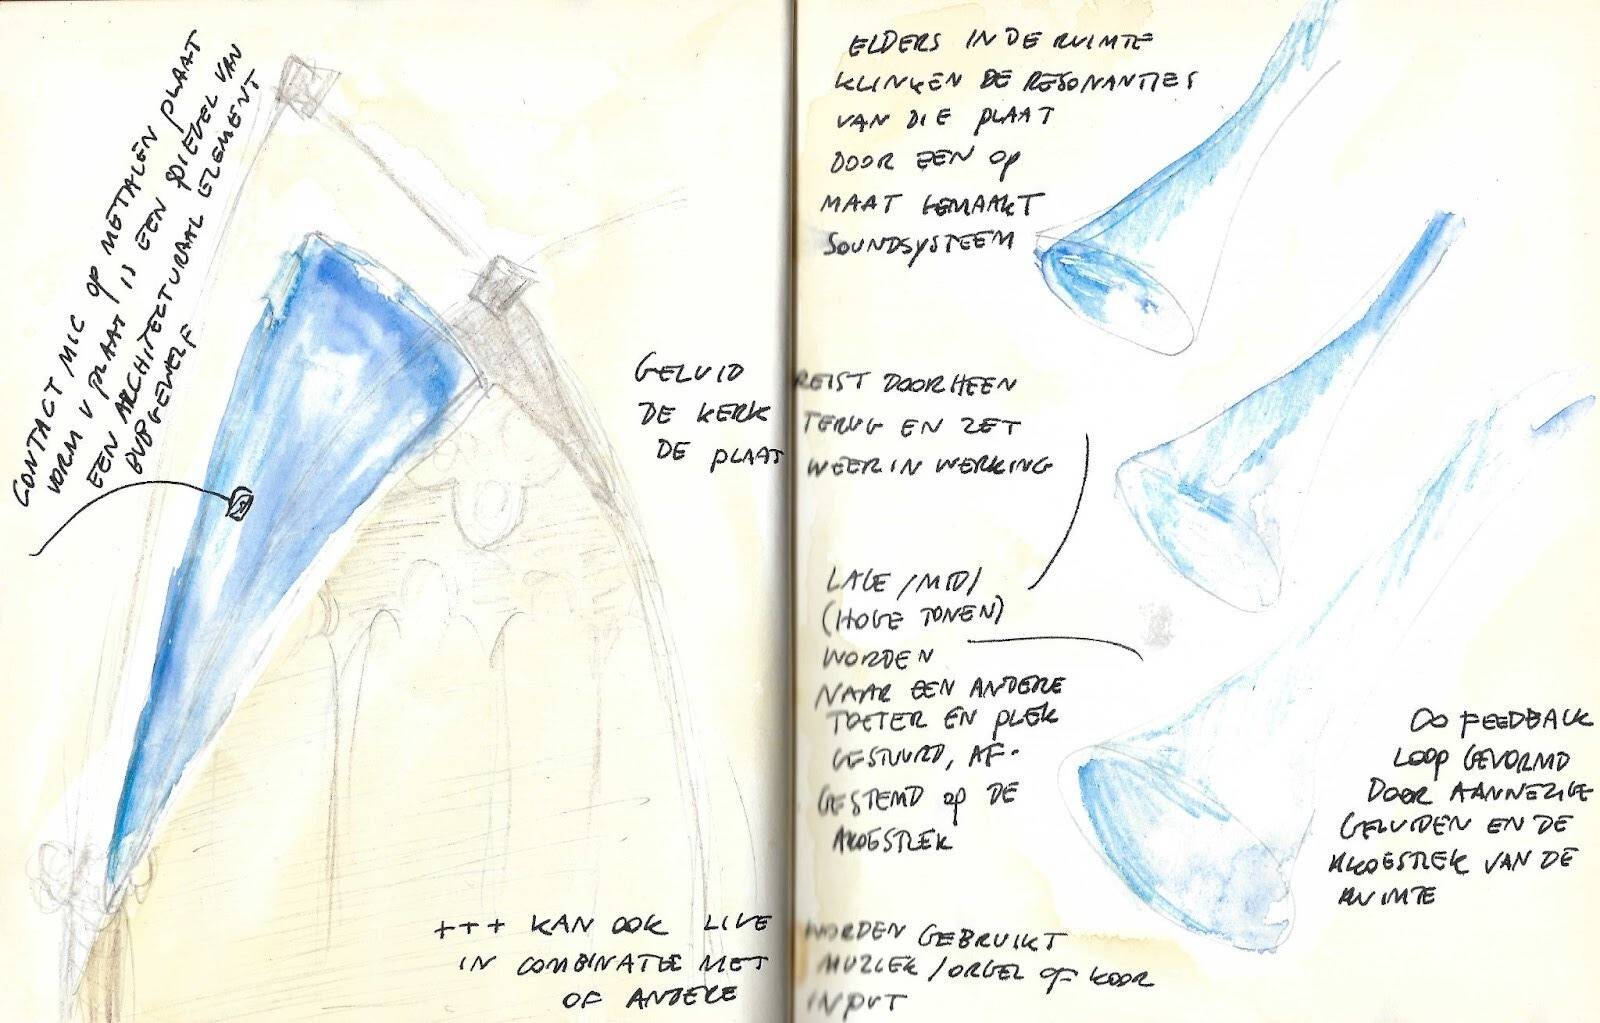 CONTACT MIC OP METALEN PLAAT
VORM V PLAAT IS EEN SPIEGEL VAN
EEN ARCHITECTURAAL ELEMENT
BVB GEWELF
ELDERS IN DE RUIMTE
KLINKEN DE RESONANTIES
VAN DIE PLAAT
DOOR EEN OP
MAAT GEMAAKT
SOUNDSYSTEEM
GELUID REIST DOORHEEN
DE KERK TERUG EN ZET
DE PLAAT WEER IN WERKING
LAGE /MID/
(HOGE TONEN)
WORDEN
NAAR EEN ANDERE
TOETER EN PLEK
GESTUURD, AF-
GESTEMD OP DE
AKOESTIEK
∞ FEEDBACK
LOOP GEVORMD
DOOR AANWEZIGE
GELUIDEN EN DE
AKOESTIEK VAN DE
RUIMTE
+++ KAN OOK LIVE WORDEN GEBRUIKT
IN COMBINATIE MET MUZIEK /ORGEL OF KOOR
OF ANDERE INPUT